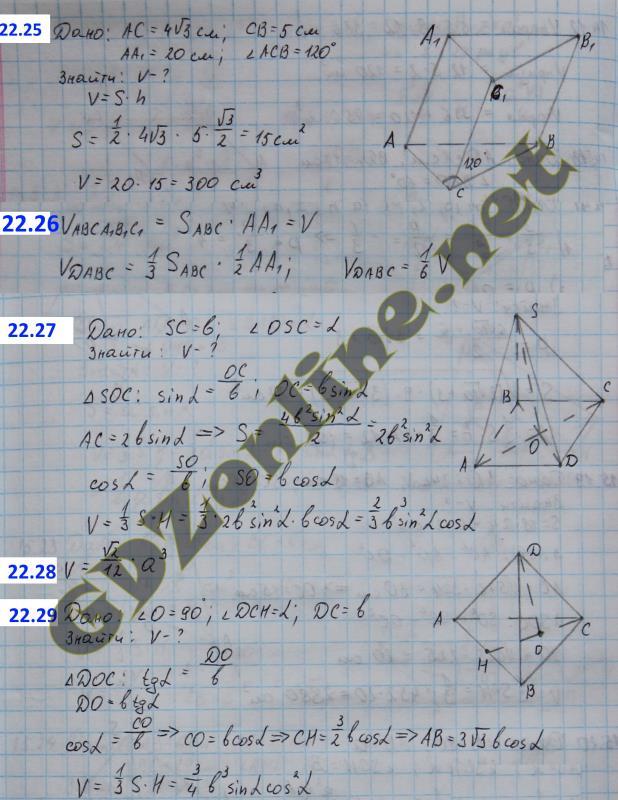 22.25 Дано: AC = 4√3 см; CB = 5 см
AA₁ = 20 см; ∠ACB = 120°
Знайти: V - ?
V = S · h
S = 1/2 · 4√3 · 5 · √3/2 = 15 см²
V = 20 · 15 = 300 см³
A₁
B₁
C₁
A
B
120°
C
22.26 V_ABCA₁B₁C₁ = S_ABC · AA₁ = V
V_DABC = 1/3 S_ABC · 1/2 AA₁; V_DABC = 1/6 V
22.27 Дано: SC = b; ∠OSC = α
Знайти: V - ?
△SOC: sinα = OC/b; OC = b sinα
AC = 2b sinα => S = 4b² sin²α/2 = 2b² sin²α
cosα = SO/b; SO = b cosα
V = 1/3 S·H = 1/3 · 2b² sin²α · b cosα = 2/3 b³ sin²α cosα
S
B
C
O
A
D
22.28 V = √2/12 · a³
22.29 Дано: ∠O = 90°; ∠DCH = α; DC = b
Знайти: V - ?
△DOC: tgα = DO/b
DO = b tgα
cosα = CO/b => CO = b cosα => CH = 3/2 b cosα => AB = 3√3 b cosα
V = 1/3 S·H = 3/4 b³ sinα cos²α
D
A
C
O
H
B
GDZonline.net